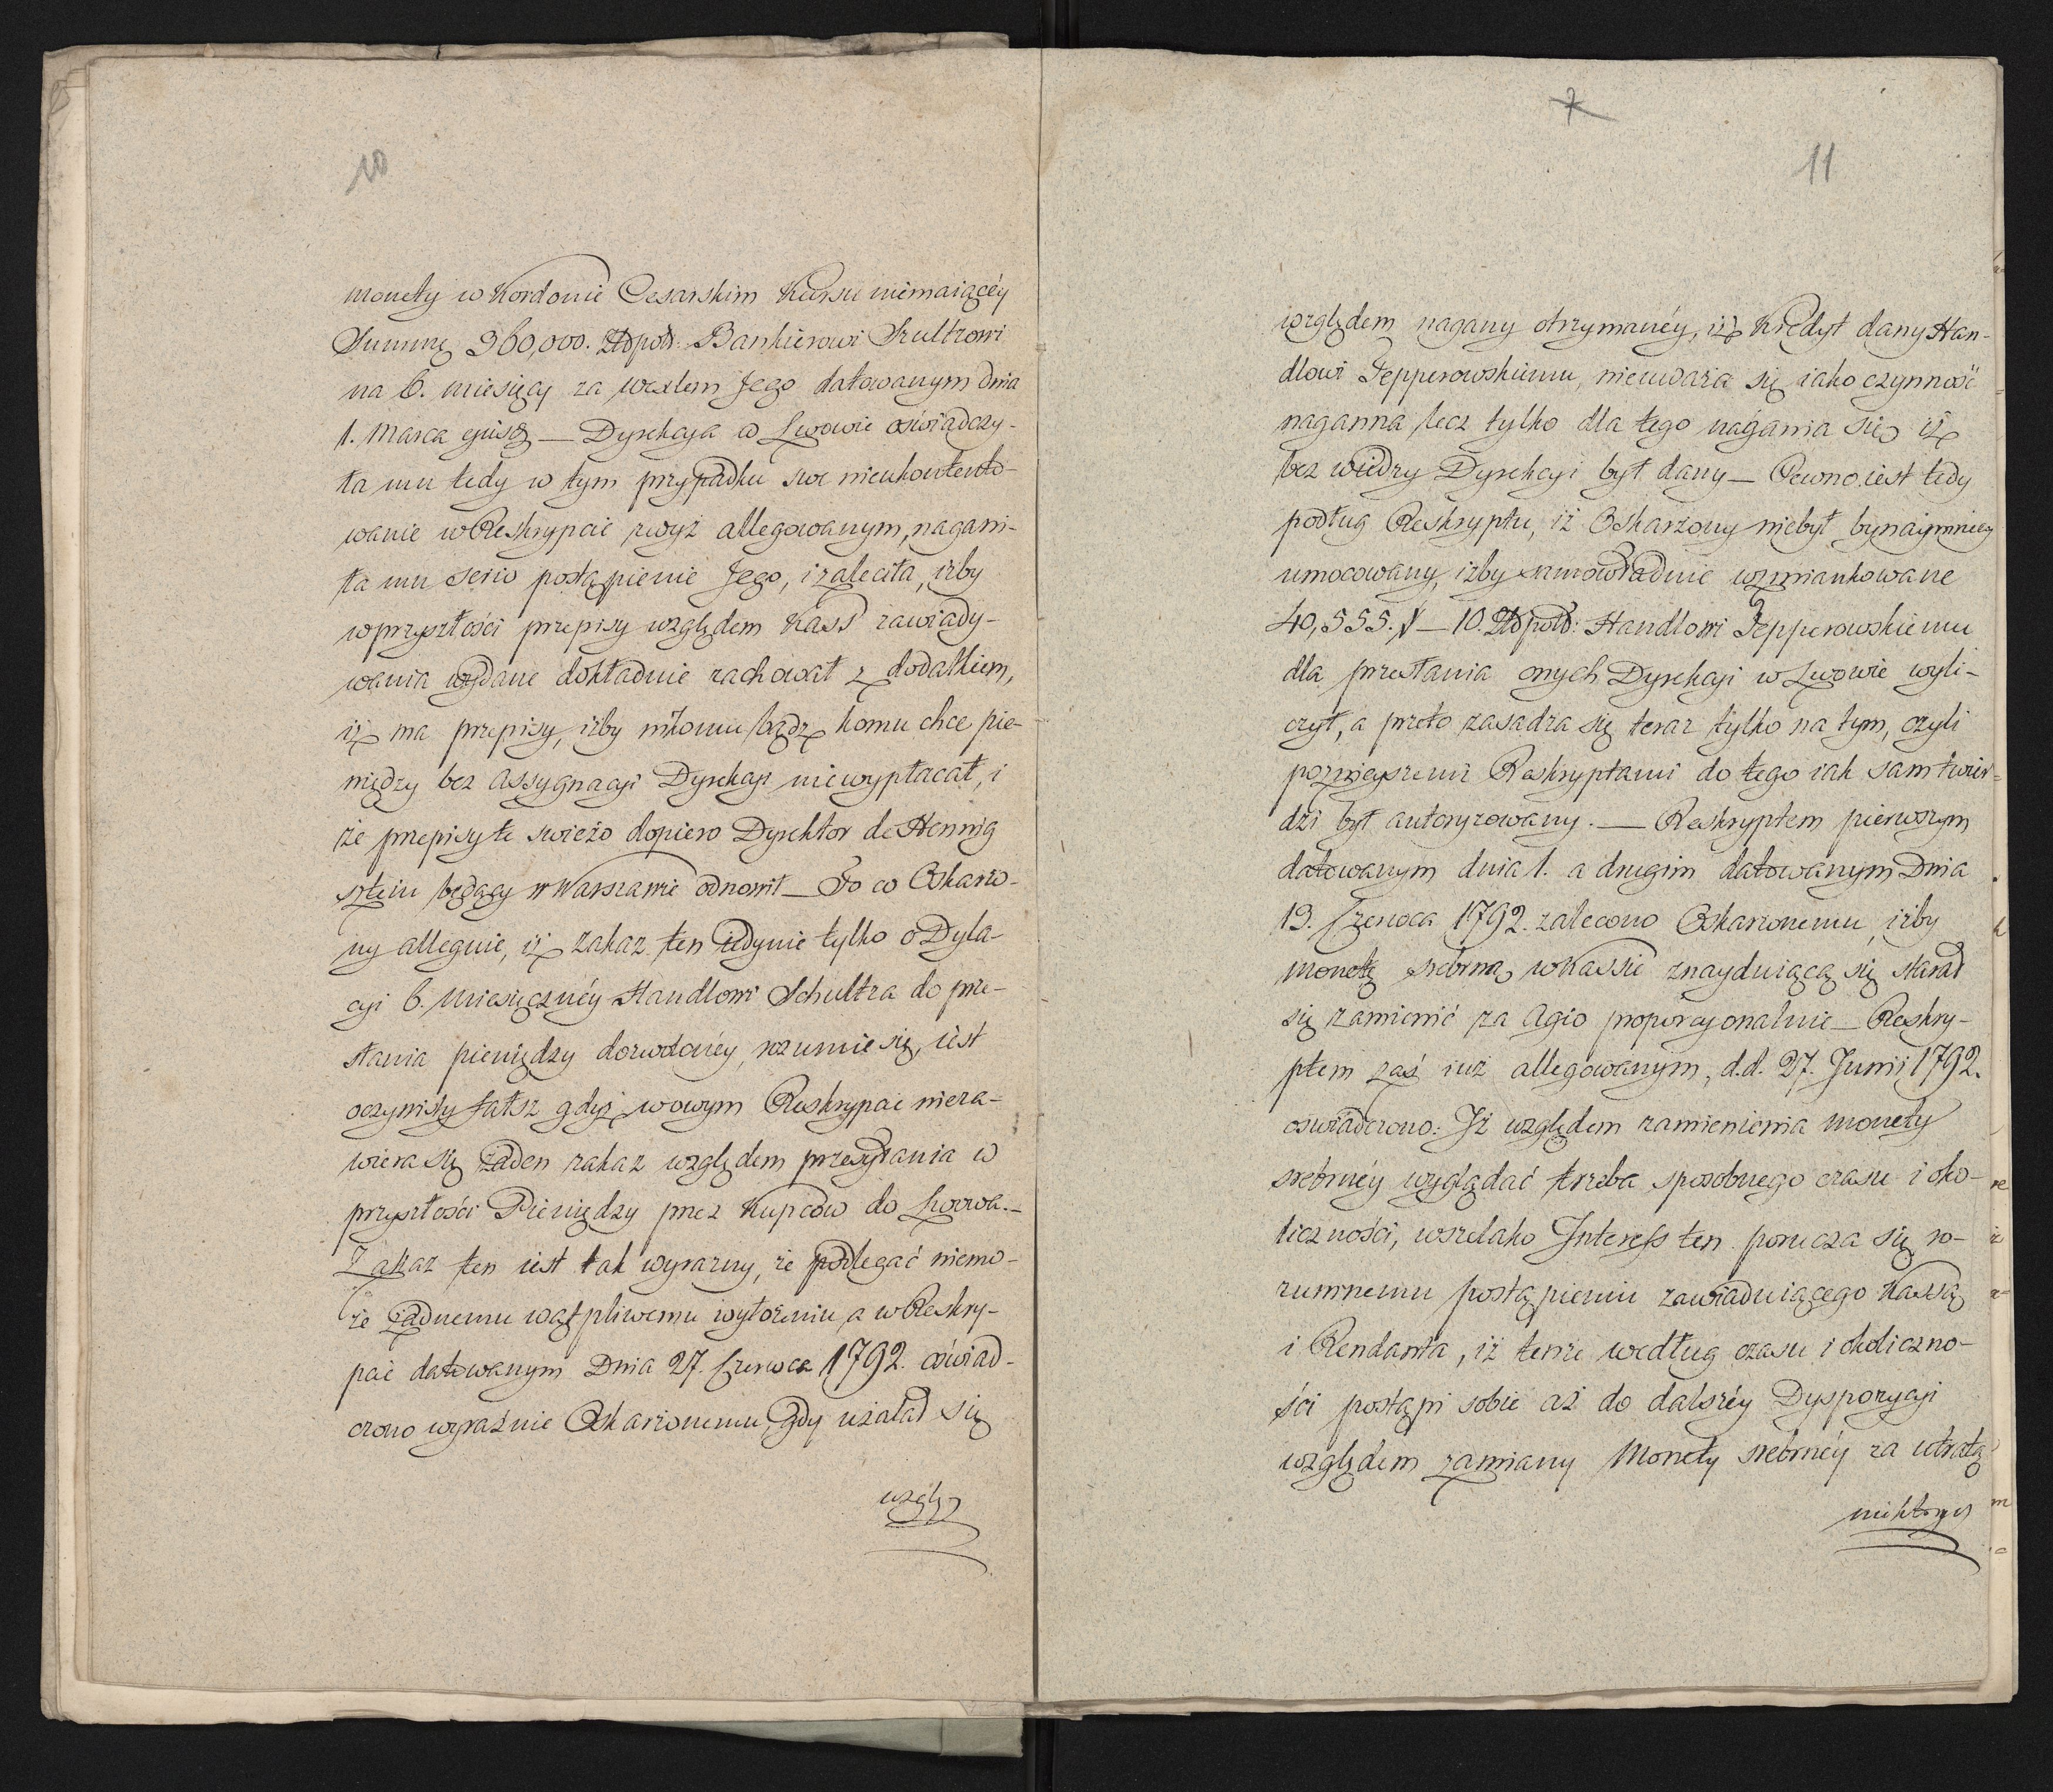 10
monety w Kordonie Cesarskim Kursu niemaiącéy
Summę 360,000. Złt pols: Bankierowi Szultzowi
na 6. miesięcy za wexlem Jego datowanym dnia
1. Marca ejusd — Dyrekcya w Lwowie oświadczy-
ła mu tedy w tym przypadku swe nieukontento-
wanie w Reskrypcie zwyż allegowanym, nagani-
ła mu serio postąpienie Jego, i zaleciła, iżby
w przyszłości przepisy względem Kass zawiady-
wania wydane dokładnie zachował z dodatkiem,
iż ma przepisy, iżby nikomu bądź komu chce pie-
niędzy bez Assygnacyi Dyrekcyi niewypłacał, i
że przepisy te swieżo dopiero Dyrektor de Hennig
sztein będący w Warszawie odnowił — To co Oskarżo-
ny alleguie, iż zakaz ten iedynie tylko o Dyla-
cyi 6. miesięcznéy Handlowi Schultza do prze-
słania pieniędzy dozwolonéy, rozumie się, iest
oczywisty fałsz gdyż w owym Reskrypcie nieza-
wiera się żaden zakaz względem przesyłania w
przyszłości Pieniędzy przez Kupców do Lwowa.—
Zakaz ten iest tak wyraźny, że podlegać niemo-
że żadnemu wątpliwemu wyłożeniu, a w Reskry-
pcie datowanym Dnia 27. Czerwca 1792. oświad-
czono wyraźnie Oskarżonemu, gdy użalał się
wzglę
7
11
względem nagany otrzymanéy, iż Kredyt dany Han-
dlowi Tepperowskiemu, nieuważa się iako czynność
naganna lecz tylko dla tego nagania się iż
bez wiedzy Dyrekcyi był dany — Pewno iest tedy
podług Reskryptu, iż Oskarżony niebył bynaymniey
umocowany, iżby samowładnie wzmiankowane
40,555. # — 10. Złt pols: Handlowi Tepperowskiemu
dla przesłania onych Dyrekcyi w Lwowie wyli-
czył, a przeto zasadza się teraz tylko na tym, czyli
poznieyszemi Reskryptami do tego iak sam twier-
dzi był autoryzowany. — Reskryptem pierwszym
datowanym dnia 1. a drugim datowanym Dnia
19. Czerwca 1792. zalecono Oskarżonemu, iżby
monetę srebrną w Kassie znayduiącą się starał
się zamienić za Agio proporcyonalnie — Reskry-
ptem zaś iuż allegowanym, d.d. 27. Junii 1792.
oswiadczono: Iż względem zamienienia monety
srebrnéy wyglądać trzeba sposobnego czasu i oko-
liczności, wszelako Interess ten porucza się ro-
zumnemu postąpieniu zawiaduiącego Kassą
i Rendanta, iż tenże według czasu i okoliczno-
ści postąpi sobie aż do dalszéy Dyspozycyi
względem zamiany Monety srebrnéy za utratą
niektorą